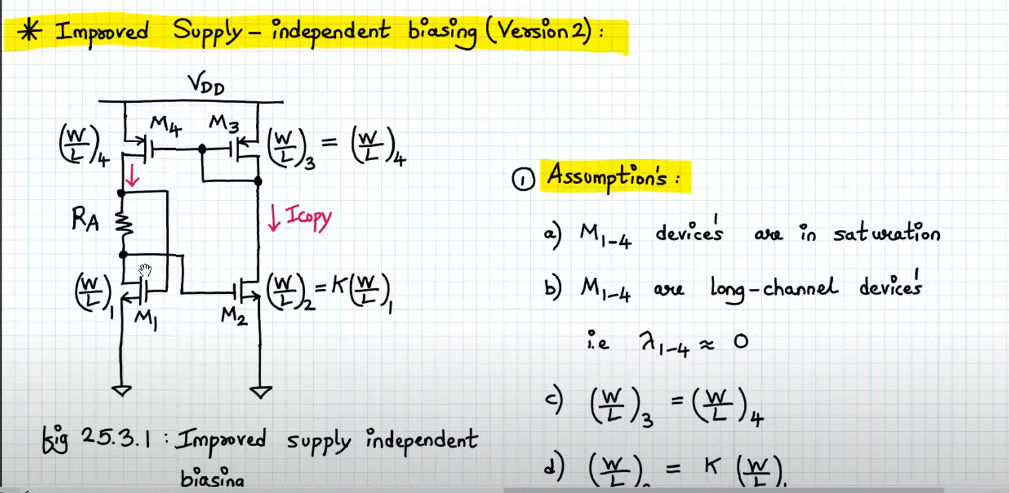 * Improved Supply - independent biasing (Version 2) :
VDD
M4 M3
(W/L)4 (W/L)3 = (W/L)4
RA
Icopy
(W/L)1 (W/L)2 = K(W/L)1
M1 M2
fig 25.3.1 : Improved supply independent
biasing
① Assumption's :
a) M1-4 device's are in saturation
b) M1-4 are long-channel device's
i.e λ1-4 ≈ 0
c) (W/L)3 = (W/L)4
d) (W/L) = K (W/L)